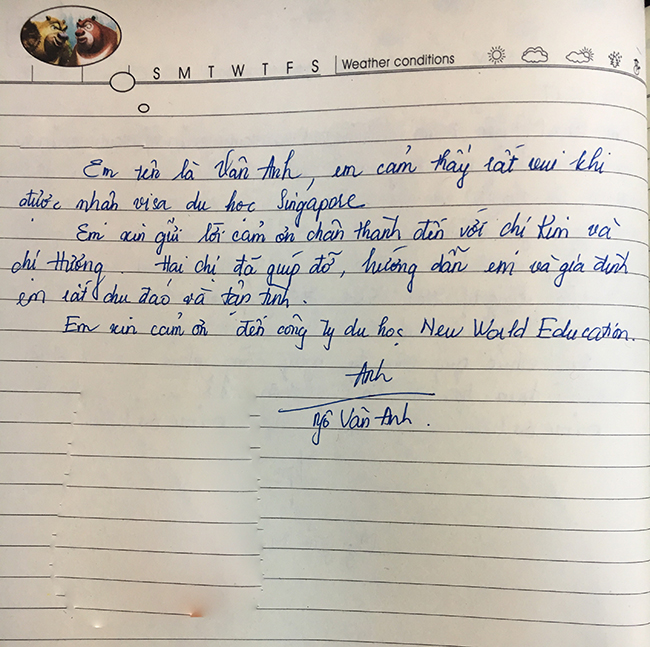 S M T W T F S Weather conditions
Em tên là Vân Anh, em cảm thấy rất vui khi
được nhận visa du học Singapore
Em xin gửi lời cảm ơn chân thành đến với chị Kim và
chị Hương. Hai chị đã giúp đỡ, hướng dẫn em và gia đình
em rất chu đáo và tận tình.
Em xin cảm ơn đến công ty du học New World Education.
Anh
Ngô Vân Anh.